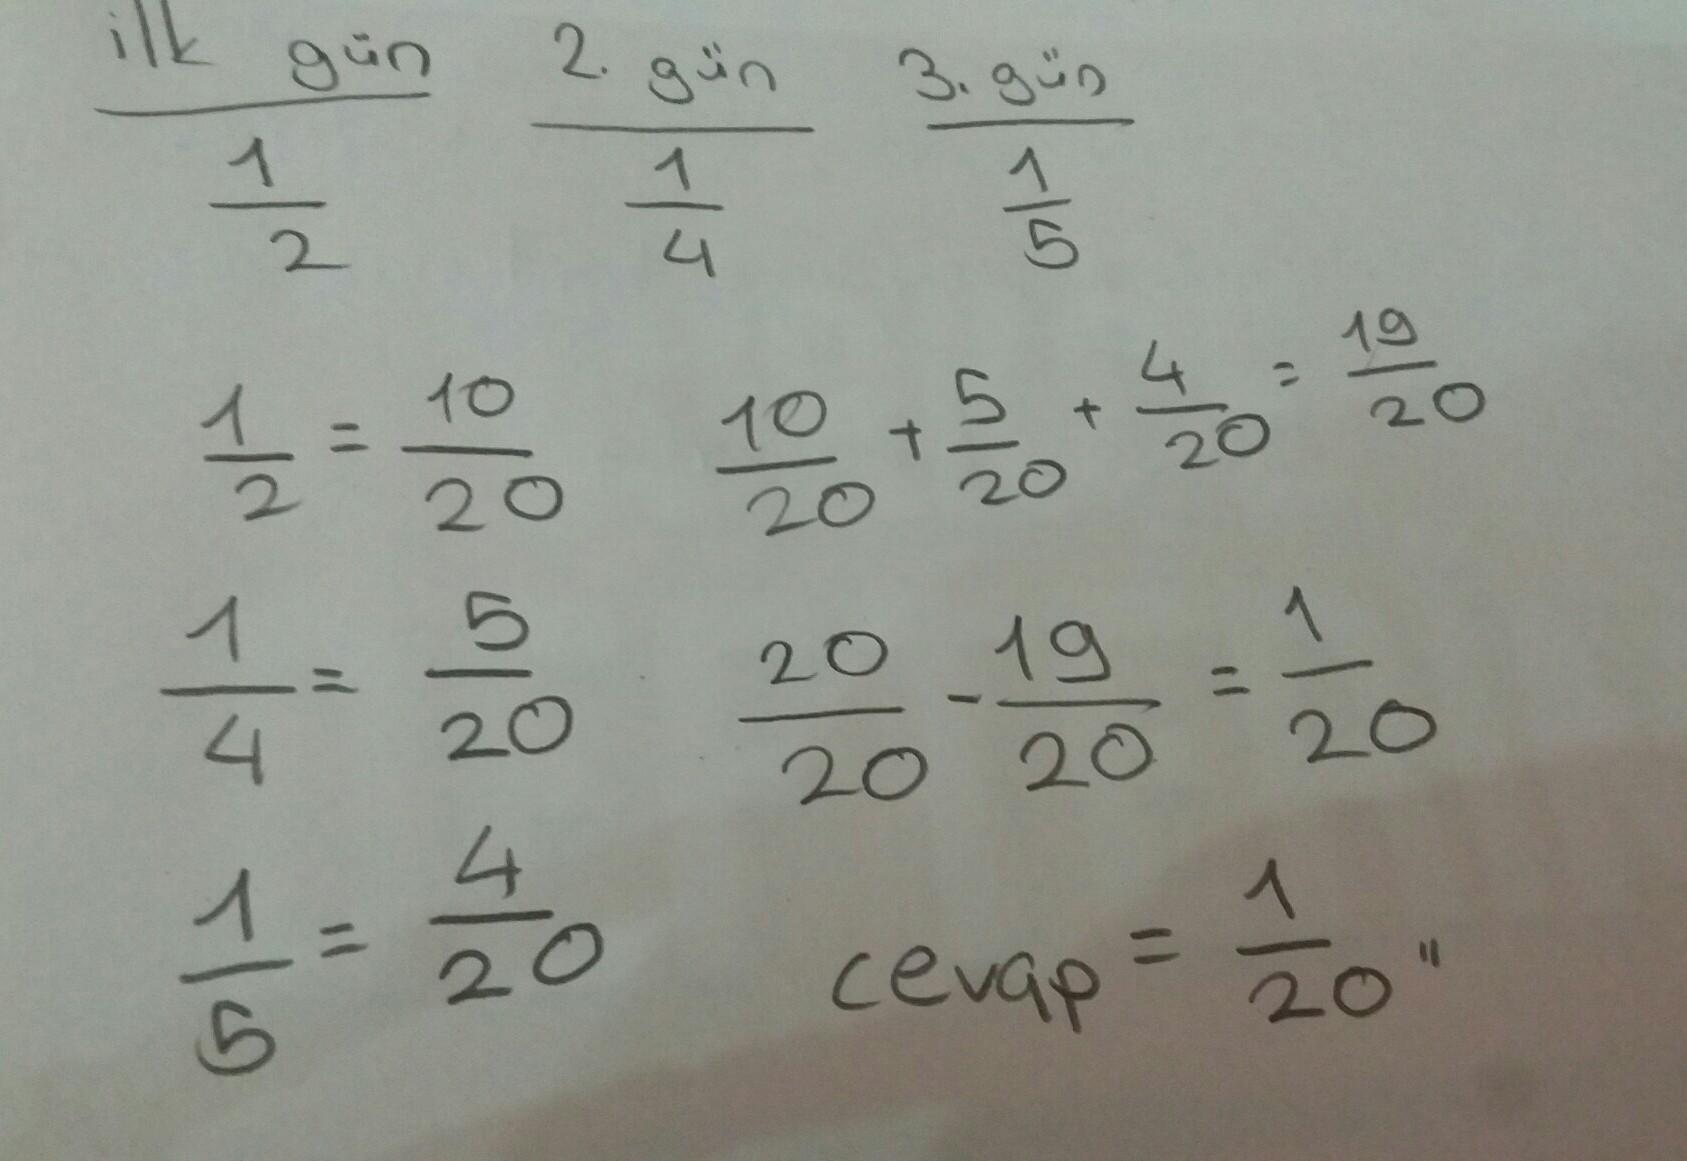 ilk gün 2. gün 3. gün
1/2 1/4 1/5
1/2 = 10/20 10/20 + 5/20 + 4/20 = 19/20
1/4 = 5/20 20/20 - 19/20 = 1/20
1/5 = 4/20 cevap = 1/20 "